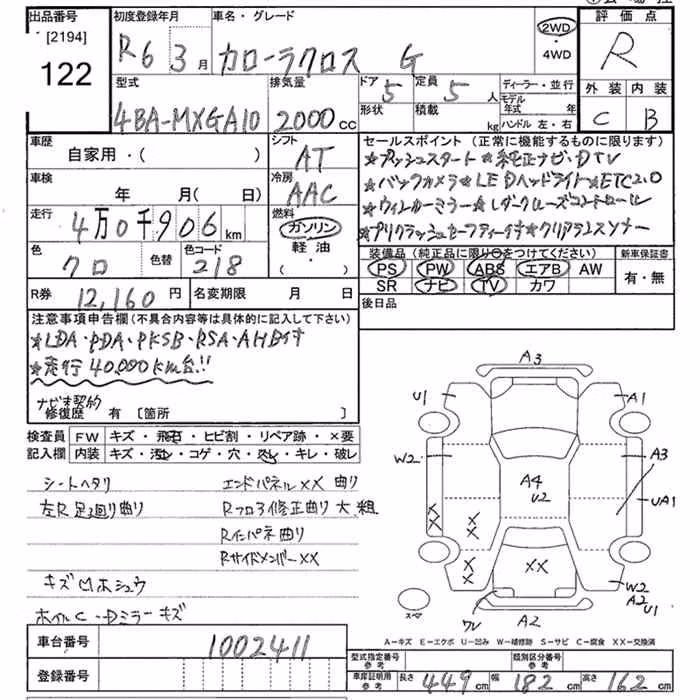 出品番号
[2194]
122
初度登録年月
R6 3月
車名・グレード
カローラクロス G
2WD
・
4WD
評価点
R
外装 内装
C B
型式
4BA-MXGA10
排気量
2000cc
ドア 5
定員 5人
形状
積載 kg
ディーラー・並行
モデル年式 年
ハンドル 左・右
車歴
自家用・( )
シフト
AT
車検
年 月( 日)
冷房
AAC
走行
4万0千906km
燃料
ガソリン
軽油
( ・ )
色
クロ
色替
色コード
218
R券 12,160円
名変期限 月 日
セールスポイント (正常に機能するものに限ります)
★プッシュスタート★純正ナビ・DTV
★バックカメラ★LEDヘッドライト★ETC2.0
★ウィンカーミラー★レダクルーズコントロール
★プリクラッシュセーフティ付★クリアランスソナー
装備品 (純正品に限り○をつけてください)
新車保証書
PS PW ABS エアB AW
SR ナビ TV カワ
有・無
後日品
注意事項申告欄(不具合内容等は具体的に記入して下さい)
★LDA・PDA・PKSB・RSA・AHB付
★走行40,000km台!!
ナビ未契約
修復歴 有 [箇所 ]
検査員記入欄
FW キズ・飛石・ヒビ割・リペア跡・×要
内装 キズ・汚レ・コゲ・穴・スレ・キレ・破レ
シートヘタリ
エンドパネル××曲り
左R足廻り曲り
Rフロア修正曲り大、組
Rインパネ曲り
Rサイドメンバー××
キズMホシュウ
ホイルC・Dミラーキズ
A3
U1
A1
W2
A3
A4
U2
UA1
×
×
×
×
×
×
××
W2
A2
U1
W
A2
スペア
A-キズ E-エクボ U-凹み W-補修跡 S-サビ C-腐食 XX-交換済
車台番号
1002411
登録番号
型式指定番号
参考
類別区分番号
参考
車庫証明用
参考
長さ 449cm 幅 182cm 高さ 162cm